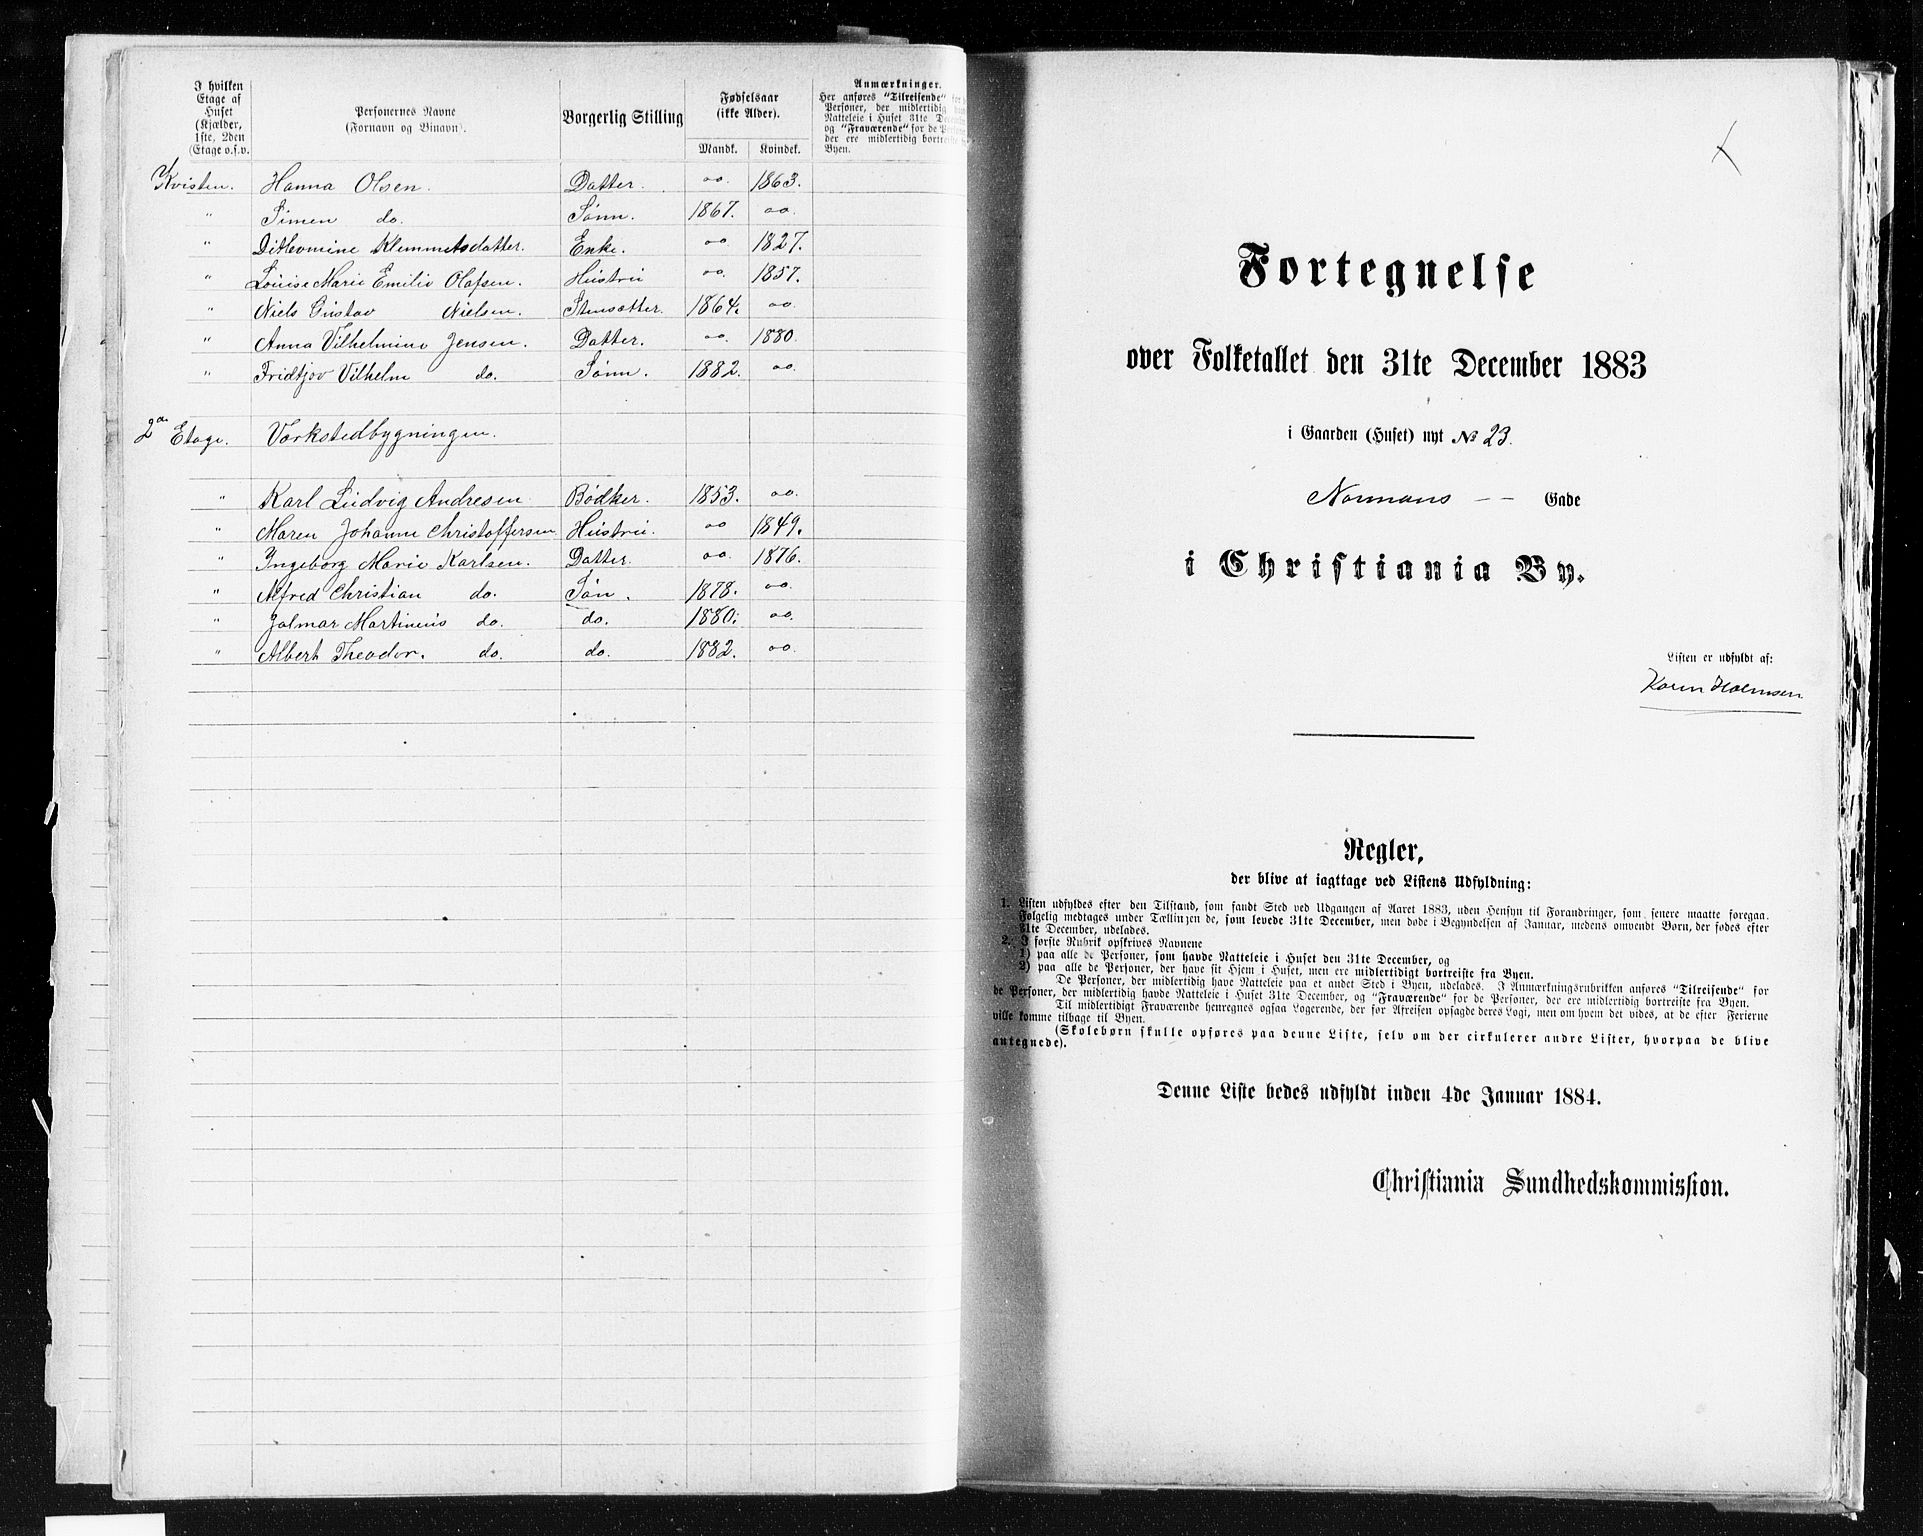 I hvilken
Etage af
Huset
(Kjælder,
1ste, 2den
Etage o.s.v.
Personernes Navne
(Fornavn og Binavn).
Borgerlig Stilling
Fødselsaar
(ikke Alder).
Mandk. Kvindek.
Anmærkninger.
Her anføres "Tilreisende" for
Personer, der midlertidig
Natteleie i Huset 31te
og "Fraværende" for de
der ere midlertidig bortreiste
Byen.
Kvisten. Hanna Olsen. Datter. oo. 1863.
" Simen do. Sønn. 1867. oo.
" Ditlevmine Klemmetsdatter. Enke. oo. 1827.
" Louise Marie Emilie Olafsen. Hustru oo. 1857.
" Niels Gustav Nielsen. Stensætter. 1864. oo.
" Anna Vilhelmine Jensen. Datter. oo. 1880.
" Fridtjov Vilhelm do. Sønn. 1882. oo.
2den Etage. Værkstedbygningen.
" Karl Ludvig Andresen Bødker. 1853. oo.
" Maren Johanne Christoffersen Hustru. oo 1849.
" Ingeborg Marie Karlsen. Datter. oo. 1876.
" Alfred Christian do. Søn. 1878. oo.
" Jalmar Martinius do. do. 1880. oo.
" Albert Theodor. do. do. 1882. oo.
Fortegnelse
over Folketallet den 31te December 1883
i Gaarden (Huset) nyt № 23.
Normans - - Gade
i Christiania By.
Listen er udfyldt af:
Karen Holmsen
Regler,
der blive at iagttage ved Listens Udfyldning:
1. Listen udfyldes efter den Tilstand, som fandt Sted ved Udgangen af Aaret 1883, uden Hensyn til Forandringer, som senere maatte foregaa.
Følgelig medtages under Tællingen de, som levede 31te December, men døde i Begyndelsen af Januar, medens omvendt Børn, der fødes efter
31te December, udelades.
2. I første Rubrik opskrives Navnene
1) paa alle de Personer, som havde Natteleie i Huset den 31te December, og
2) paa alle de Personer, der have sit Hjem i Huset, men ere midlertidigt bortreiste fra Byen.
De Personer, der midlertidig have Natteleie paa et andet Sted i Byen, udelades. I Anmærkningsrubrikken anføres "Tilreisende" for
de Personer, der midlertidig havde Natteleie i Huset 31te December, og "Fraværende" for de Personer, der ere midlertidig bortreiste fra Byen.
Til midlertidigt Fraværende henregnes ogsaa Logerende, der før Afreisen opsagde deres Logi, men om hvem det vides, at de efter Ferierne
ville komme tilbage til Byen.
(Skolebørn skulle opføres paa denne Liste, selv om der cirkulerer andre Lister, hvorpaa de blive
antegnede).
Denne Liste bedes udfyldt inden 4de Januar 1884.
Christiania Sundhedskommission.